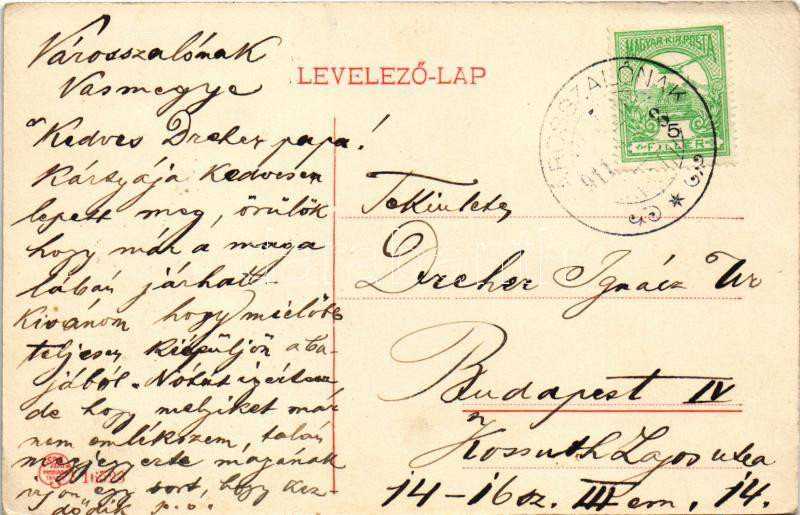 Városszalónak
Vasmegye
LEVELEZŐ-LAP
MAGYAR KIR. POSTA
FILLÉR
5
VÁROSSZALÓNAK
911
Kedves Dreher papa!
Kártyája kedvesen
lepett meg, örülök
hogy már a maga
lábán járhatt.
Kivánom hogy mielőbb
teljesen kiépüljön a ba-
jából. Nótát igértem
de hogy melyiket már
nem emlékszem, talán
megjegyezte magának
irjon egy sort, hogy kez-
dődik
16523
Tekintetes
Dreher Ignácz Ur
Budapest IV
Kossuth Lajos utca
14-16 sz. III em. 14.
darabanth